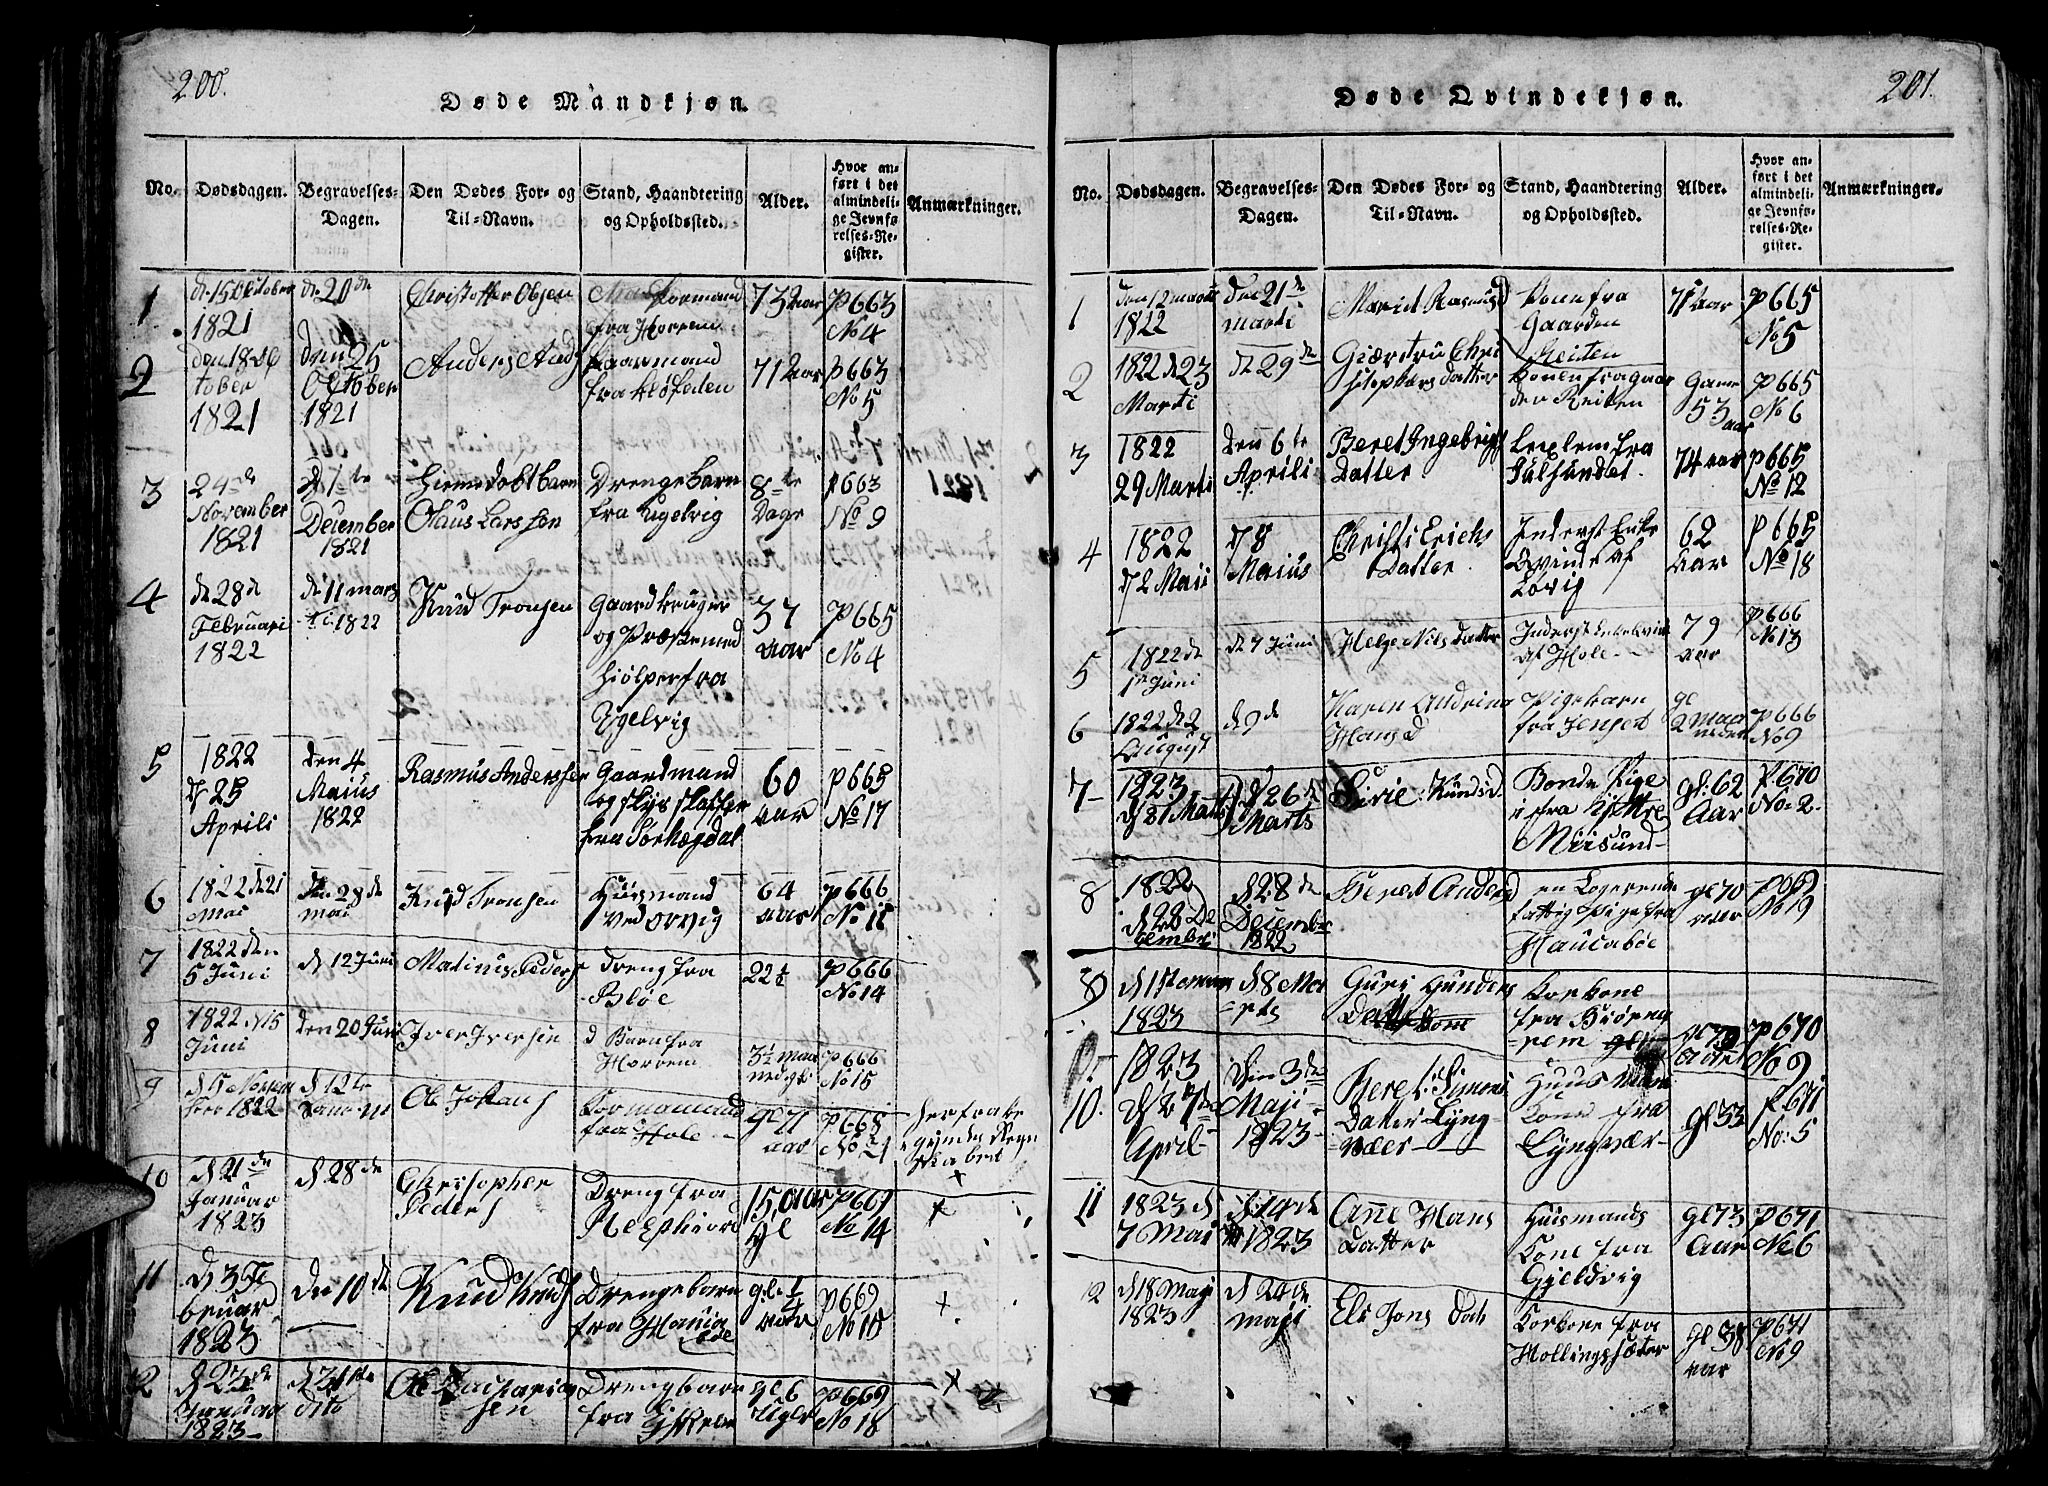 200.
Døde Mandkjøn.
No.
Dødsdagen.
Begravelses-
Dagen.
Den Dødes For- og
Til-Navn.
Stand, Haandtering
og Opholdssted.
Alder.
Hvor an-
ført i det
almindeli-
ge Jevnfø-
relses-Re-
gister.
Anmærkninger.
1
d. 15 October
1821
d. 20de
Christoffer Olsen
fra Horrem
73 aar
p 663
No 4
2
den 18 Oc
tober
1821
den 25
October
1821
Anders And
Gaarmand
71 aar
p 663
No 5
3
24de
November
1821
December
1821
Hiemedøbt barn
Olaus Larssen
Drengebarn
fra Ugelvig
8te
Dage
p 663
No 9
4
d 28d
Februari
1822
d 11 mar
ti 1822
Knud Tronsen
Gaardbruger
og Præstemed
hiølper fra
Ugelvig
37
aar
p 665
No 4
5
1822
d 25
Aprili
den 4
Maius
1822
Rasmus Anderssen
Gaardmand
og skys skaffer
fra
60
aar
p 665
No 17
6
1822 d 21
Mai
den 28de
mai
Knud Tronsen
Huusmand
ved Orvig
64
aar
p 666
No 11
7
1822 den
5 Juni
d 12 Juni
Matinus Peders
dreng fra
Bløe
22 1/2
p 666
No 14
8
1822 d 15
Juni
den 20 Juni
Iver Iversen
Barn fra
Horrem
3 1/2 maa
p 666
No 15
9
1822
d 12te
Ole Johans
fra Hole
gl 71
aar
p 668
No 21
10
d 21de
Januar
1823
d 28de
Christopher
Peders
Dreng fra
15 aar
gl
p 669
No 14
+
11
d 3 Fe
bruar
1823
den 10de
Knud Knuds
Drengebarn
fra
gl 1/4
aar
p 669
No 18
+
12
d 23de
1823
d 31te
dito
Ole Zacharia
sen
Drengbarn
fra
gl 6
Uger
p 669
No 18
+
201.
Døde Qvindekjøn.
No.
Dødsdagen.
Begravelses-
Dagen.
Den Dødes For- og
Til-Navn.
Stand, Haandtering
og Opholdssted.
Alder.
Hvor an-
ført i det
almindeli-
ge Jevnfø-
relses-Re-
gister.
Anmærkninger.
1
den 12 marti
1822
den 21de
marti
Marit Rasmusd
Kone fra
Gaarden
Reiten
71 aar
p 665
No 5
2
1822 d 23
Marti
d 29de
Giærtru Chri
datter
Konen fra gaar
den Reiten
Gamel
53 aar
p 665
No 6
3
1822
29 Marti
den 6te
Aprili
Beret Ingebrigt
Datter
fra
Julsundet
74 aar
p 665
No 12
4
1822
d 2 Maii
d 8
Maius
Christi Erichs
Datter
Inderst Enke
Qvinde af
62
aar
p 665
No 18
5
1822 d
1 Juni
d 7 Juni
Helge Nils datter
af Hole
79
aar
p 666
No 13
6
1822 d 2
August
d 9de
Karen Andrina
Hansd
Pigebarn
fra Jenset
gl
2 maa
neder
p 666
No 9
7
1823
d 26
Marts
Sirie Knudsd
Bonde Pige
Meisund
gl: 62
Aar
p. 670
No: 2
8
1822
d 28 De
cembri
d 28de
December
1822
Beret Andersd
en Logerende
fattig Pige fra
Haucabøe
gl 70
aar
p 669
No 19
9
1823
d 8 Ma
rts
Guri Gunders
Datter
fra Biørne
rem
Aar
p 670
No 9
10.
1823
d 27de
April
Den 3de
Maji
1823
Beret Simons
Dater Lyng
vaer
Huusmans
Kone fra
Lyngvær
gl 53
p. 671
No: 5
11
1823 d
7 Mai
d 14de
1823
Anne Hans
datter
Huusmands
Kone fra
Gjeldvig
gl 73
Aar
p 671
No 6
12
d 18 Maji
1823
d 24de
maji
Els Jons Dat
fra
Hollingsæter
gl 38
aar
p 671
No 9